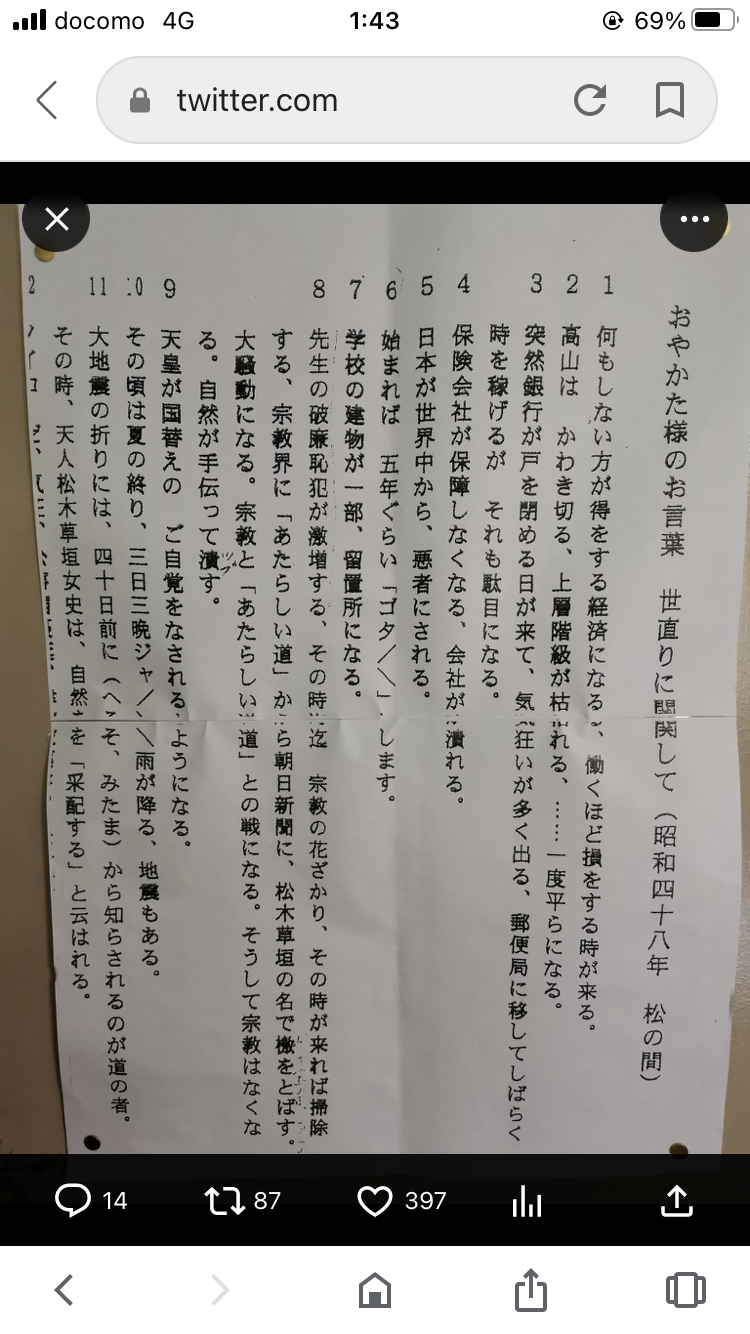 docomo 4G
1:43
69%
twitter.com
おやかた様のお言葉 世直りに関して（昭和四十八年 松の間）
1 何もしない方が得をする経済になる、働くほど損をする時が来る。
2 高山は かわき切る、上層階級が枯れる、……一度平らになる。
3 突然銀行が戸を閉める日が来て、気狂いが多く出る、郵便局に移してしばらく
時を稼げるが それも駄目になる。
4 保険会社が保障しなくなる、会社が潰れる。
5 日本が世界中から、悪者にされる。
6 始まれば 五年ぐらい「ゴタ／＼」します。
7 学校の建物が一部、留置所になる。
8 先生の破廉恥犯が激増する、その時迄 宗教の花ざかり、その時が来れば掃除
する、宗教界に「あたらしい道」から朝日新聞に、松木草垣の名で檄をとばす。
大騒動になる。宗教と「あたらしい道」との戦になる。そうして宗教はなくな
る。自然が手伝って潰す。
ツブ
9 天皇が国替えの ご自覚をなされるようになる。
10 その頃は夏の終り、三日三晩ジャ／＼雨が降る、地震もある。
11 大地震の折りには、四十日前に（へそ、みたま）から知らされるのが道の者。
その時、天人松木草垣女史は、自然を「采配する」と云はれる。
2
14
87
397